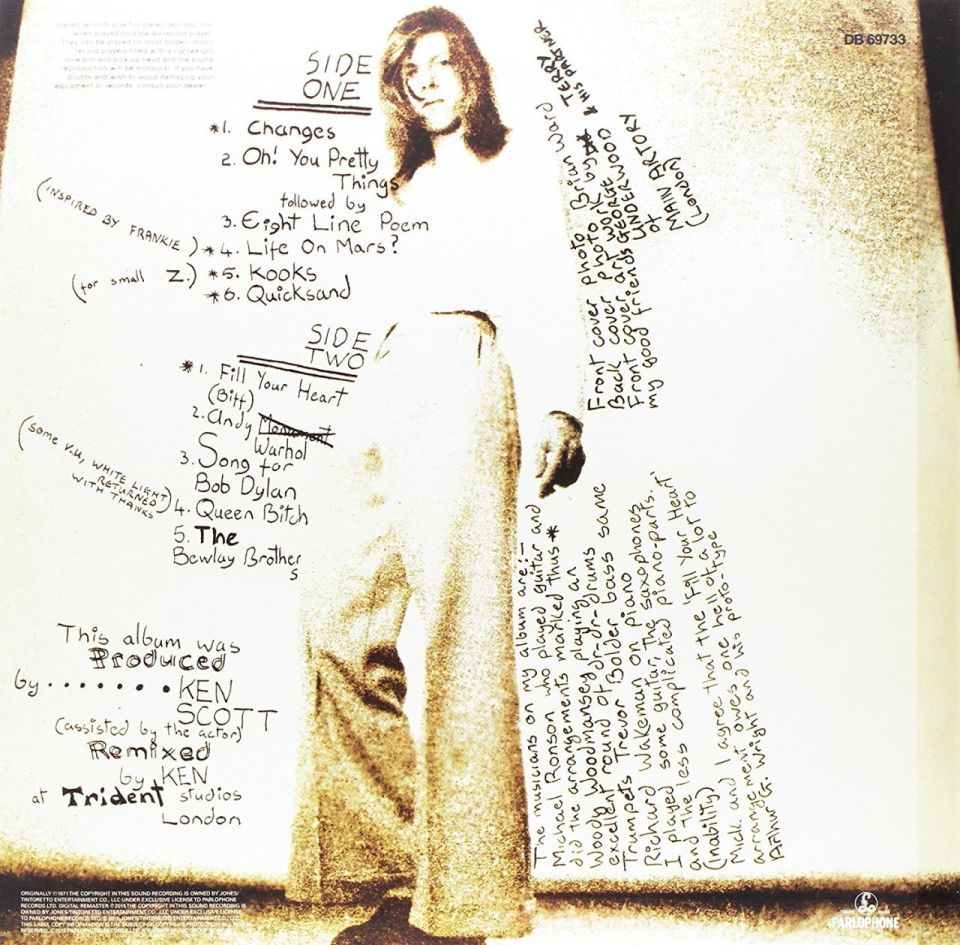 Stereo records give full stereo reproduction
when played on a stereo record player.
They can be played on most modern mono
record players fitted with a lightweight
tone arm and pick-up head and the sound
reproduction will be monaural. If you have
doubts and wish to avoid damaging your
equipment or records, consult your dealer.
DB 69733
SIDE
ONE
*1. Changes
2. Oh! You Pretty
Things
followed by
3. Eight Line Poem
(INSPIRED BY FRANKIE)
*4. Life On Mars?
(for small Z.)
*5. Kooks
*6. Quicksand
SIDE
TWO
*1. Fill Your Heart
(Biff)
2. Andy
Warhol
3. Song for
Bob Dylan
(some V.U, WHITE LIGHT
RETURNED
WITH THANKS)
4. Queen Bitch
5. The
Bewlay Brother
s
This album was
Produced
by........KEN
SCOTT
(assisted by the actor)
Remixed
by KEN
at Trident studios
London
Front cover photo Brian Ward
Back cover photo by
Front cover art work
my good friends GEORGE UNDERWOOD
& TERRY
HIS PARTNER
of
MAIN ARTORY
(London)
The musicians on my album are:-
Michael Ronson who played guitar and
did the arrangements marked thus *
Woody Woodmansey playing an
excellent round of dr-dr-drums
Trevor Bolder bass same
Trumpets
Richard Wakeman on piano
I played some guitar, the saxophones
and the less complicated piano-parts.
(inability)
Mick and I agree that the 'Fill Your Heart'
arrangement owes one hell of a lot to
Arthur G. Wright and his proto-type
ORIGINALLY ℗ 1971 THE COPYRIGHT IN THIS SOUND RECORDING IS OWNED BY JONES/
TINTORETTO ENTERTAINMENT CO., LLC UNDER EXCLUSIVE LICENSE TO PARLOPHONE
RECORDS LTD. DIGITAL REMASTER ℗ 2015 THE COPYRIGHT IN THIS SOUND RECORDING IS
OWNED BY JONES/TINTORETTO ENTERTAINMENT CO., LLC UNDER EXCLUSIVE LICENSE
TO PARLOPHONE RECORDS LTD.
PARLOPHONE